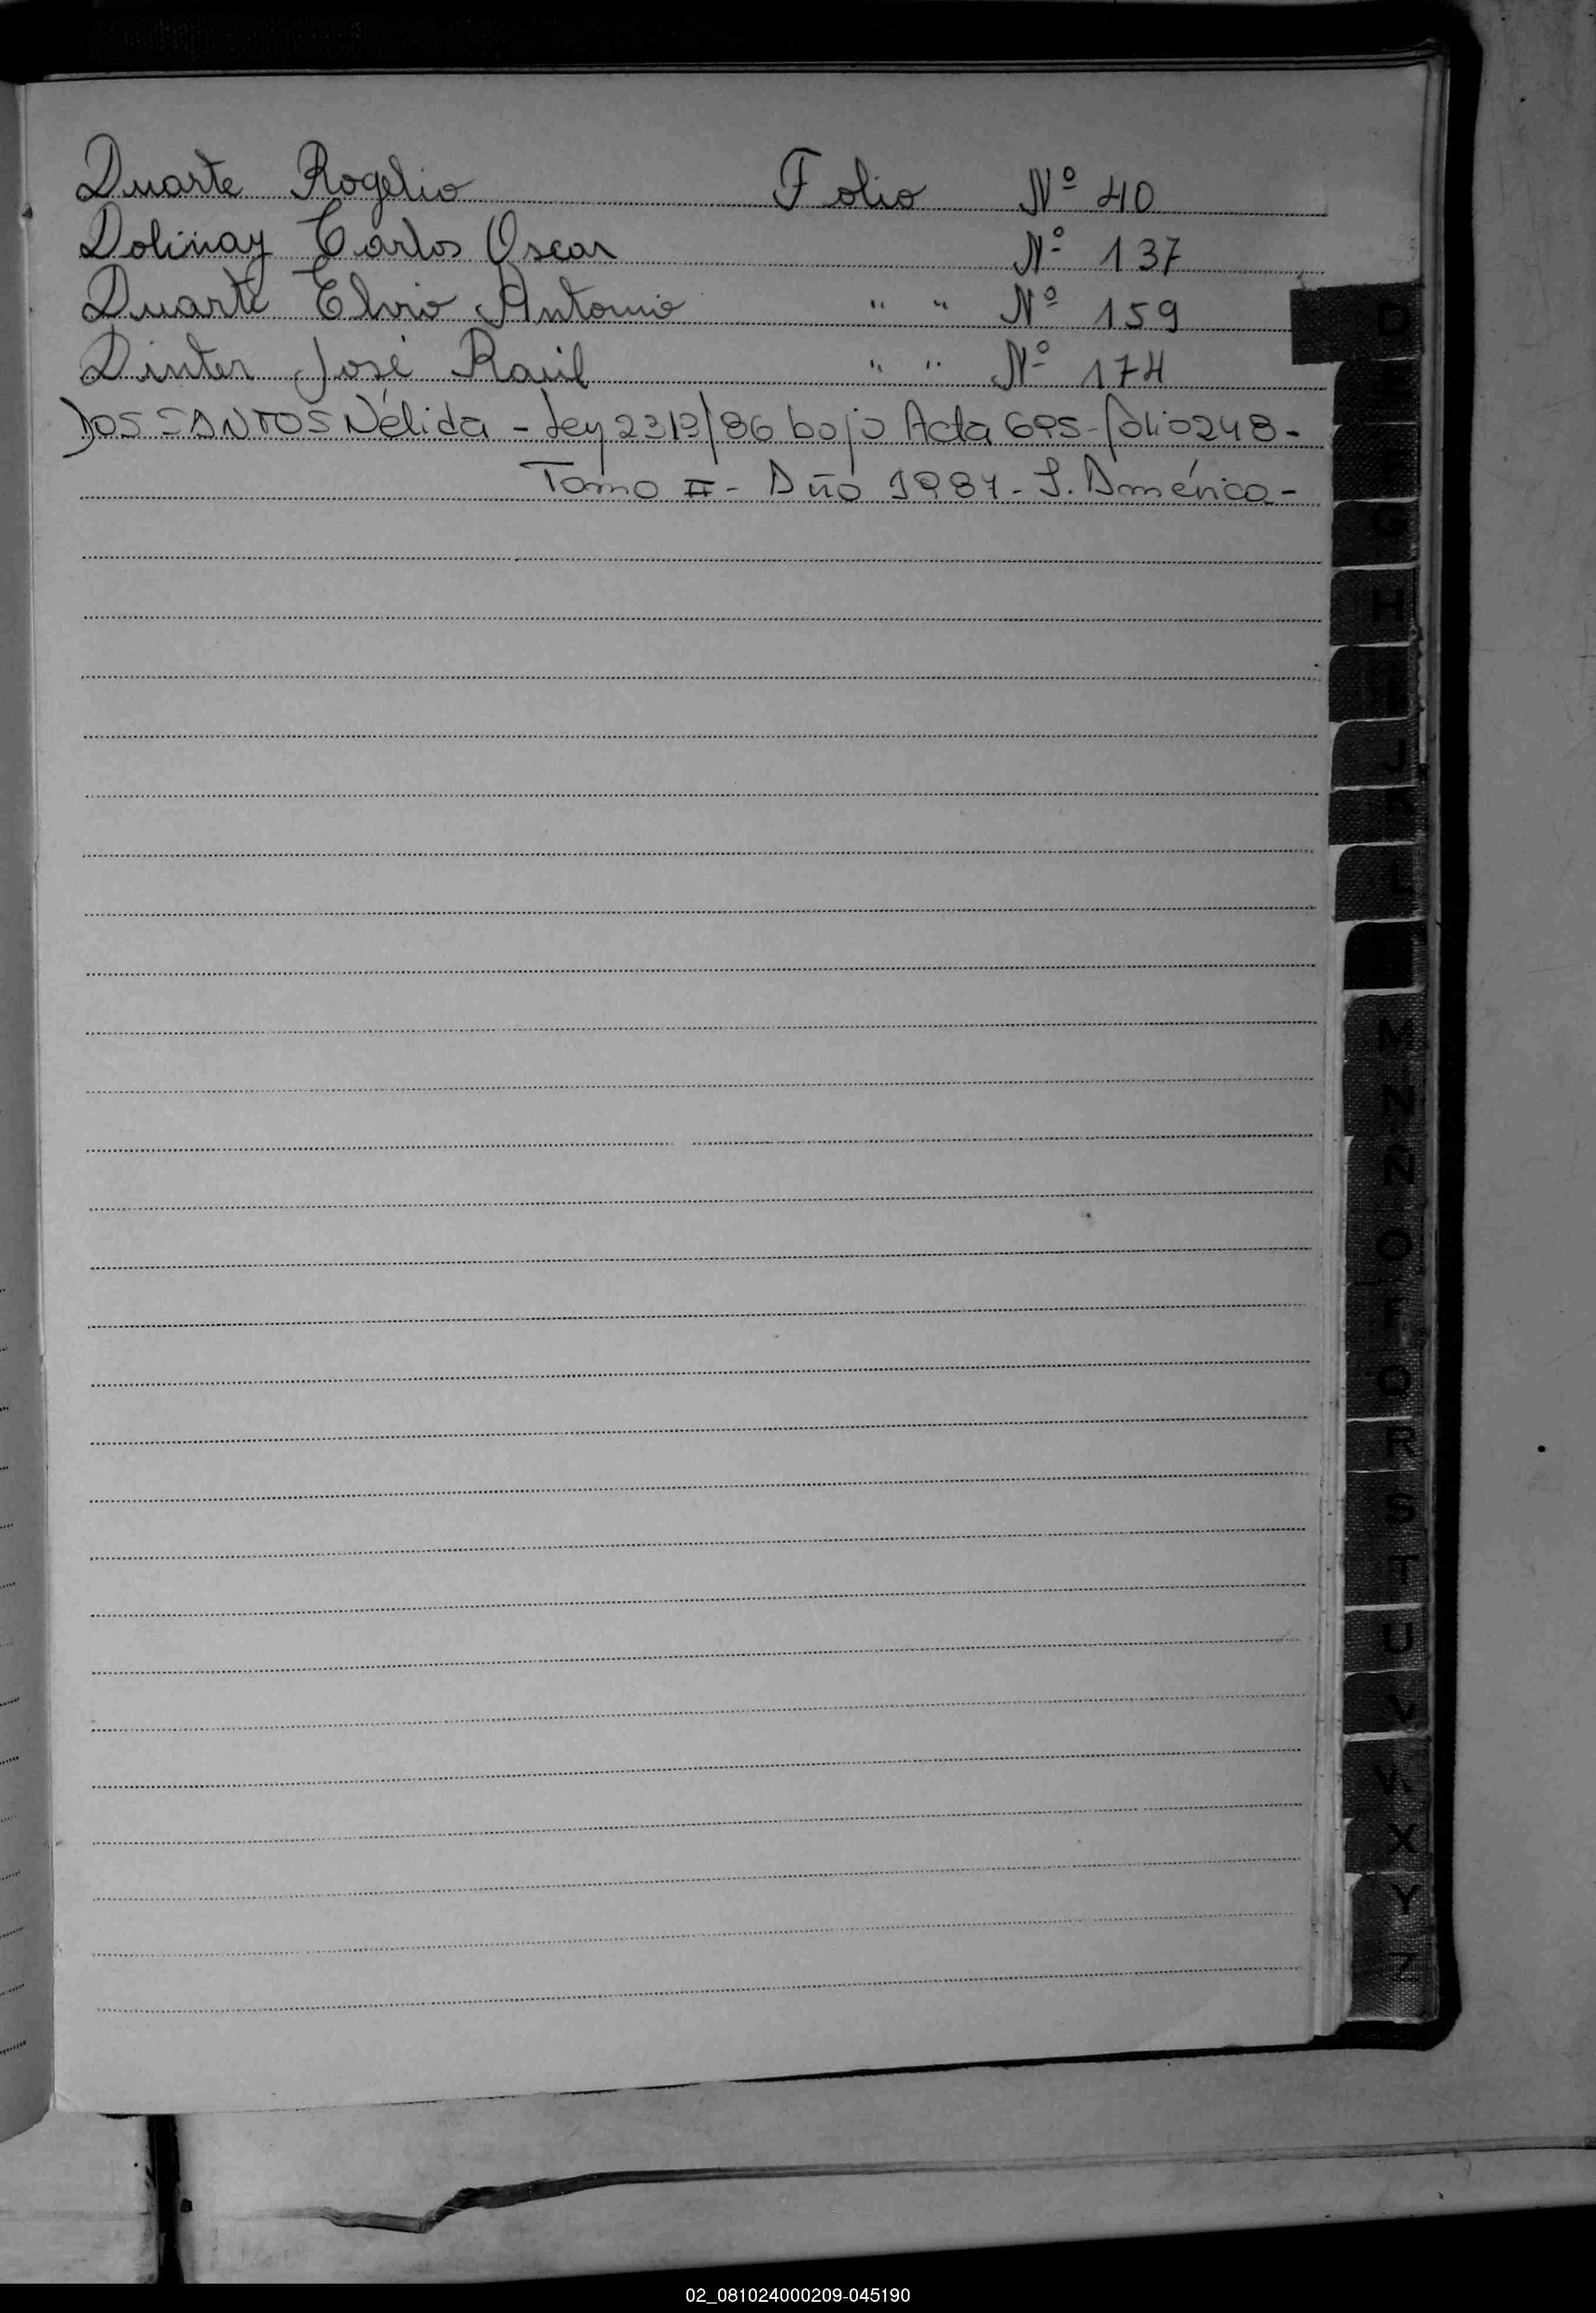 Duarte Rogelio Folio Nº 40
Dolinay Carlos Oscar Nº 137
Duarte Elvio Antonio " " Nº 159
Dinter José Raúl " " Nº 174
DOS SANTOS Nélida - Ley 2313/86 bajo Acta 695 - folio 248 -
Tomo II - Año 1987 - S. América -
D
E
F
G
H
I
J
K
L
M
N
Ñ
O
P
Q
R
S
T
U
V
W
X
Y
Z
02_081024000209-045190